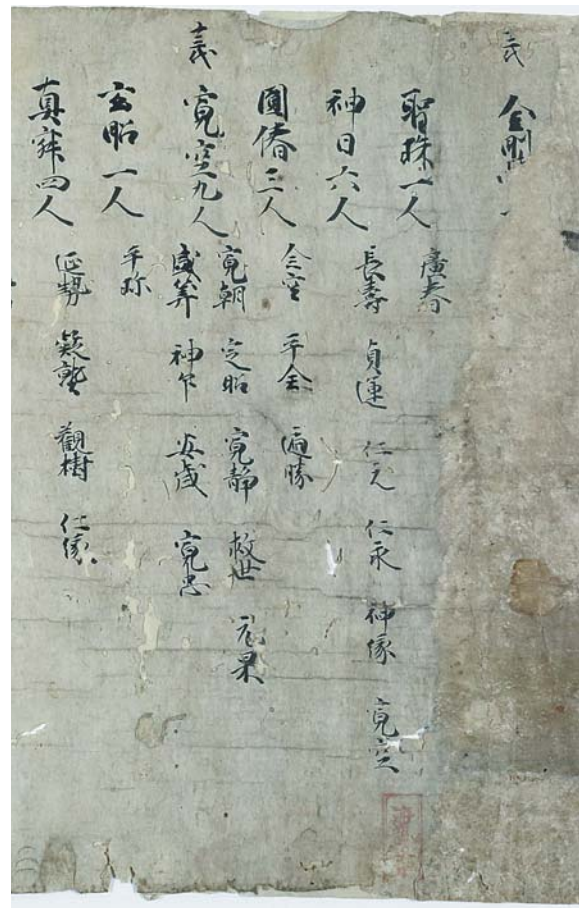 金剛
聖珠一人
廣春
神日六人
長壽 貞運 仁元 仁永 神縁 寛空
圓僐三人
平全 遍勝
寛空九人
寛朝 定昭 寛静 救世 元杲
盛筭 安歳 寛忠
玄昭一人
平珎
真寂四人
延勢 觀樹 仁縁